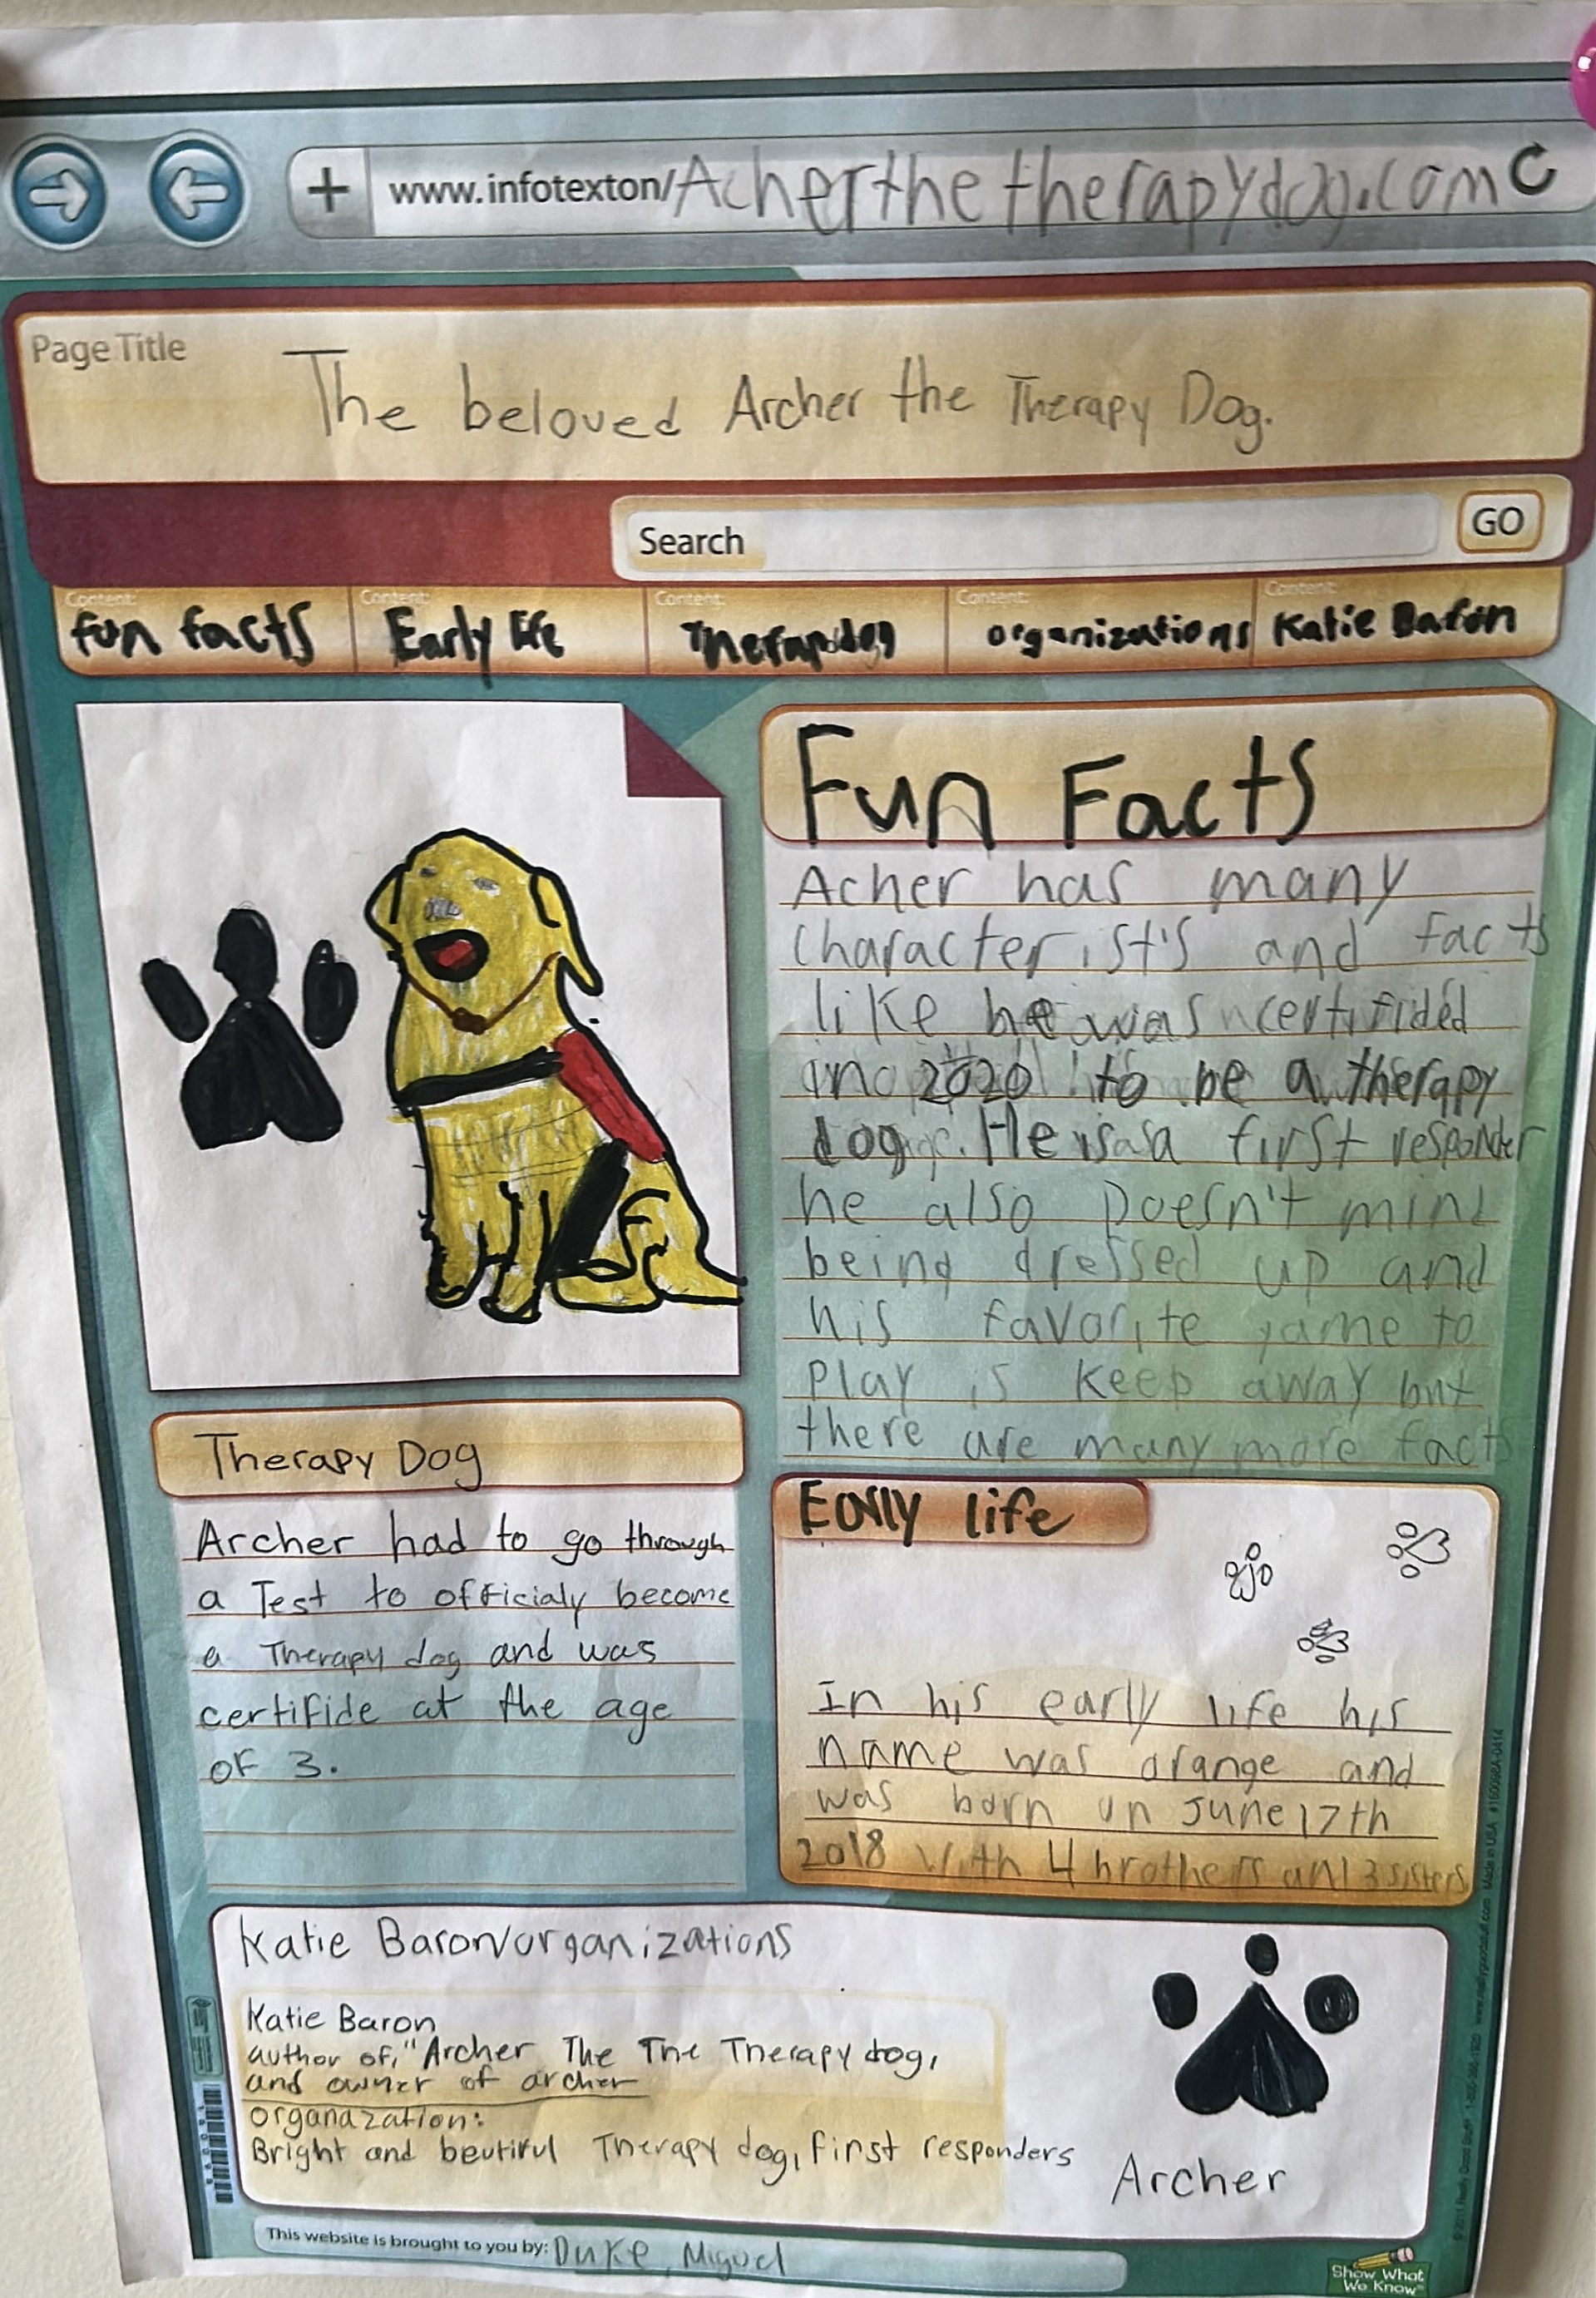 www.infotexton/Acherthetherapydog.com
Page Title
The beloved Archer the Therapy Dog.
Search GO
Content: Content: Content: Content: Content:
fun facts Early life Therapydog organizations Katie Baron
Fun Facts
Acher has many
characterist's and facts
like he was certifided
in 2020 to be a therapy
dog. He is a first responder
he also Doesn't mind
being dressed up and
his favorite game to
Play is keep away but
there are many more facts
Therapy Dog
Archer had to go through
a Test to officialy become
a Therapy dog and was
certifide at the age
of 3.
Early life
In his early life his
name was orange and
was born on June 17th
2018 with 4 brothers and 3 sisters
Katie Baron/organizations
Katie Baron
author of, "Archer The The Therapy dog,
and owner of archer
organazation:
Bright and beutiful Therapy dog, first responders
Archer
This website is brought to you by: Duke, Miguel
Show What
We Know
Made in USA #160068A-0414